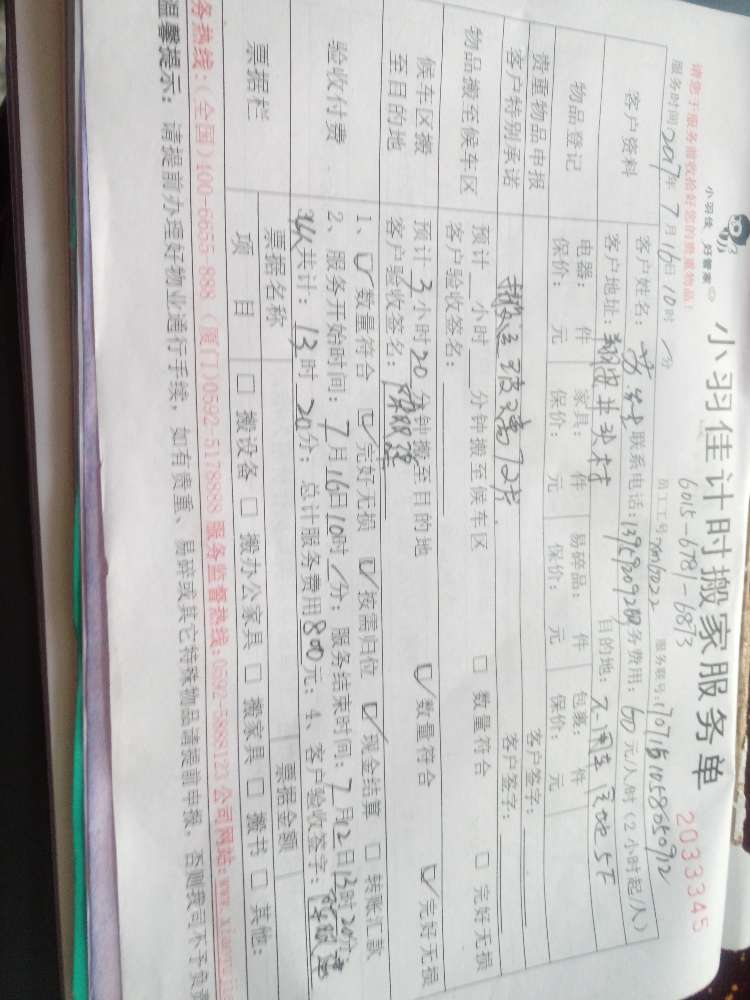 小羽佳 好管家
小羽佳计时搬家服务单
2033345
请您于服务前收拾好您的贵重物品!
6015-6781-6873
服务时间:2017年7月16日10时/分
员工工号:
服务联号:
客户资料
客户姓名:
联系电话:
服务费用:60元/人/时(2小时起/人)
客户地址:
目的地:
物品登记
电器: 件 家具: 件 易碎品: 件 包裹: 件
保价: 元 保价: 元 保价: 元 保价: 元
贵重物品申报
客户签字:
客户特别承诺
搬运玻璃72片
客户签字:
物品搬至候车区
预计 小时 分钟搬至候车区 □ 数量符合 □ 完好无损
客户验收签名:
候车区搬至目的地
预计3小时20分钟搬至目的地 ☑ 数量符合 ☑ 完好无损
客户验收签名:
验收付费
1、☑ 数量符合 ☑ 完好无损 ☑ 按需归位 ☑ 现金结算 □ 转账汇款
2、服务开始时间:7月16日10时/分; 服务结束时间:7月12日13时20分
共计:13时20分; 总计服务费用800元; 4、客户验收签字:
票据栏
票据名称
票据金额
项目
□ 搬设备 □ 搬办公家具 □ 搬家具 □ 搬书 □ 其他:
务热线:(全国)400-6655-888 (厦门)0592-5178888 服务监督热线:0592-5888123 公司网站:www.xiaoyu
温馨提示: 请提前办理好物业通行手续, 如有贵重、易碎或其它特殊物品请提前申报, 否则我司不予负